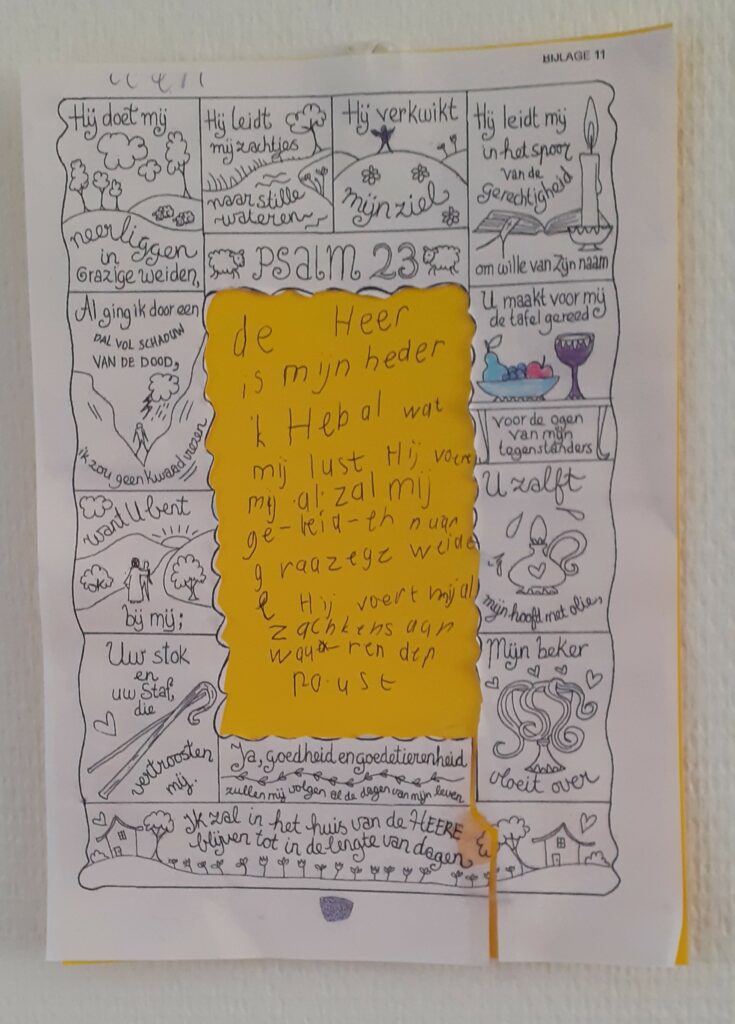 BIJLAGE 11
Hij doet mij
neerliggen
in
Grazige weiden,
Hij leidt
mij zachtjes
naar stille
wateren
Hij verkwikt
mijn ziel
Hij leidt mij
in het spoor
van de
gerechtigheid
om wille van Zijn naam
PSALM 23
Al ging ik door een
DAL VOL SCHADUW
VAN DE DOOD,
ik zou geen kwaad vrezen
want U bent
bij mij;
Uw stok
en
uw staf,
die
vertroosten
mij.
de Heer
is mijn heder
'k Heb al wat
mij lust Hij
mij al zal mij
naar
e Hij voert mij al
zachkens aan
den
U maakt voor mij
de tafel gereed
voor de ogen
van mijn
tegenstanders
U zalft
mijn hoofd met olie,
Mijn beker
vloeit over
Ja, goedheid en goedertierenheid
zullen mij volgen al de dagen van mijn leven
Ik zal in het huis van de HEERE
blijven tot in de lengte van dagen